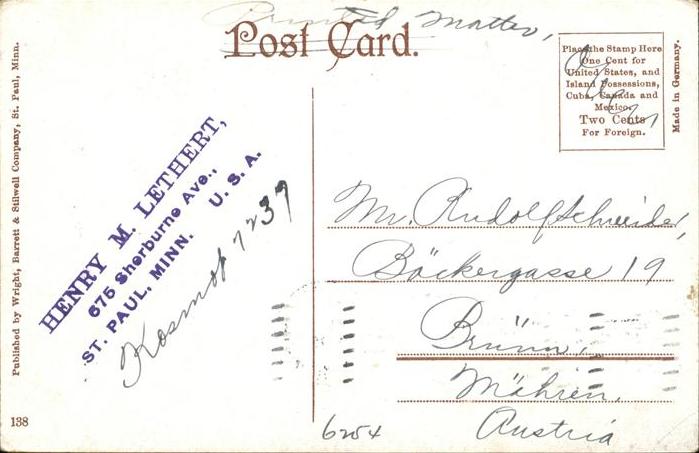 Printed Matter,
Post Card.
Place the Stamp Here
One Cent for
United States, and
Island Possessions,
Cuba, Canada and
Mexico.
Two Cents
For Foreign.
Made in Germany.
Published by Wright, Barrett & Stilwell Company, St. Paul, Minn.
HENRY M. LETHERT,
675 Sherburne Ave.,
ST. PAUL, MINN. U. S. A.
Kosmop 7237
Mr. Rudolf Schneider,
Bäckergasse 19
Brünn,
Mähren,
Austria
138
6254